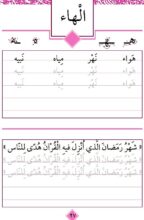 الْهاء
هـ ـهـ ـه ه
هَواء نَهْر مِياه نَبيه
هَواء نَهْر مِياه نَبيه
« شَهْرُ رَمَضَانَ الَّذِي أُنْزِلَ فِيهِ الْقُرْآنُ هُدًى لِلنَّاسِ »
شَهْرُ رَمَضَانَ الَّذِي أُنْزِلَ فِيهِ الْقُرْآنُ هُدًى لِلنَّاسِ
٤٧